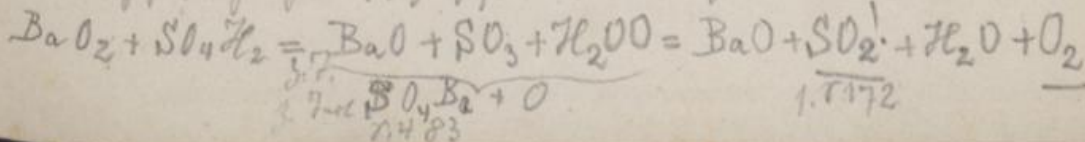 BaO2 + SO4H2 = BaO + SO3 + H2OO = BaO + SO2! + H2O + O2
SO4Ba + O